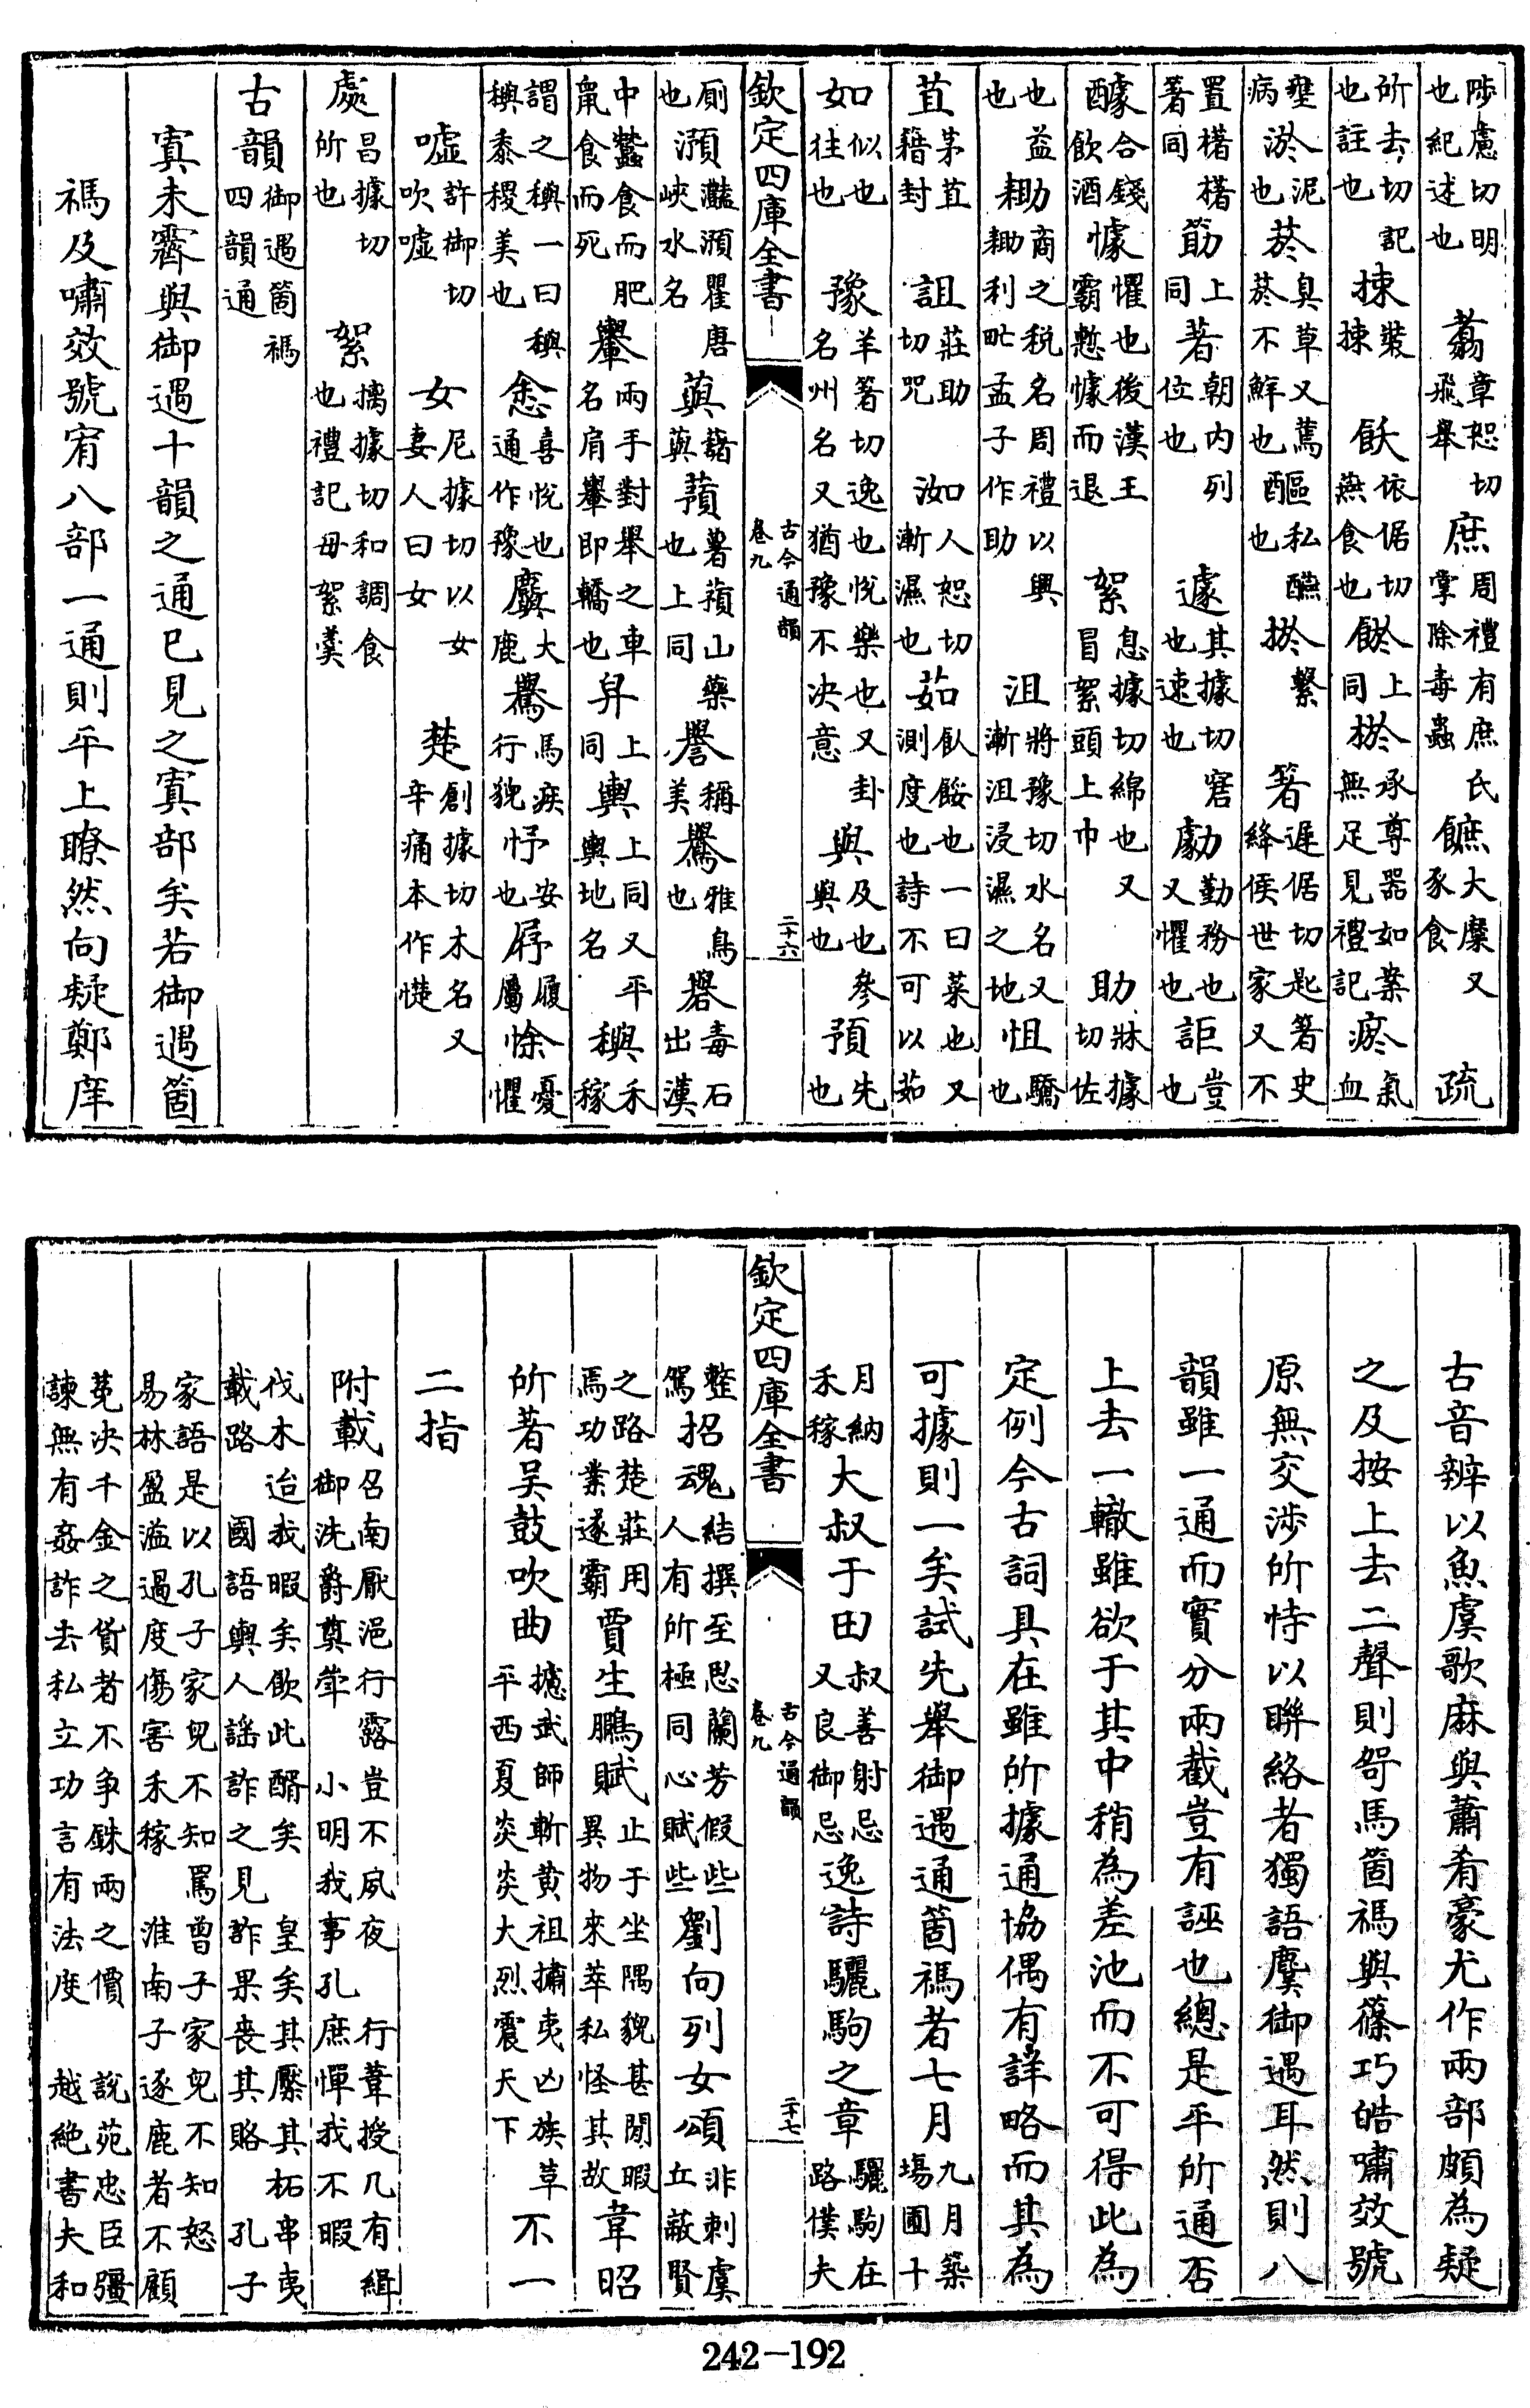 陟慮切明也紀述也 翥章恕切飛舉 庶周禮有庶氏掌除毒蠱 大糜又豕食 疏
所去切記也註也 揀裝揀 飫依倨切燕食也 上同 棜承尊器如案無足見禮記 瘀氣血
壅病 淤泥也 菸臭草又蔫菸不鮮也 醧私醼也 繫 著遲倨切匙箸史絳侯世家又不
置櫡著同 筯上同 著朝內列位也 遽其據切窘也速也 勮勤務也又懼也 詎豈也
醵合錢飲酒 懅懼也後漢王霸慙懅而退 絮息據切綿也又冒絮頭上巾 助牀據切佐
也益也 耡商之稅名周禮以興耡利甿孟子作助 沮將豫切水名又漸沮浸濕之地 怚驕也
苴茅苴藉封 詛莊助切咒 洳人恕切漸濕也 茹飤餧也一曰菜也又測度也詩不可以茹
如似也往也 豫羊箸切逸也悅樂也又卦名州名又猶豫不決意 與及也參與也 預先也
欽定四庫全書 古今通韻卷九 二十六
厠也 澦灩澦瞿唐峽水名 藇藷藇 蕷薯蕷山藥也上同 譽稱美 鸒雅鳥也 礜毒石出漢
中蠶食而肥鼠食而死 轝兩手對舉之車名肩轝即轎也 舁上同 輿上同又平輿地名 穥禾稼
謂之穥一曰穥黍稷美也 悆喜悅也通作豫 大鹿 馬疾行貌 忬安也 履屬 悇憂懼
噓許御切吹噓 女尼據切以女妻人曰女 楚創據切木名又辛痛本作憷
處昌據切所也 絮摛據切和調食也禮記毋絮羹
古韻御遇箇禡四韻通
寘未霽與御遇十韻之通已見之寘部矣若御遇箇
禡及嘯效號宥八部一通則平上瞭然向疑鄭庠
古音辨以魚虞歌麻與蕭肴豪尤作兩部頗為疑
之及按上去二聲則哿馬箇禡與篠巧皓嘯效號
原無交涉所恃以聯絡者獨語麌御遇耳然則八
韻雖一通而實分兩截豈有誣也總是平所通否
上去一轍雖欲于其中稍為差池而不可得此為
定例今古詞具在雖所據通協偶有詳略而其為
可據則一矣試先舉御遇通箇禡者七月九月築場圃十
月納禾稼大叔于田叔善射忌又良御忌逸詩驪駒之章驪駒在路僕夫
欽定四庫全書 古今通韻卷九 二十七
整駕招魂結撰至思蘭芳假些人有所極同心賦些劉向列女頌非刺虞丘蔽賢
之路楚莊用焉功業遂霸賈生鵩賦止于坐隅貌甚閒暇異物來萃私怪其故韋昭
所著吴鼓吹曲攄武師斬黄祖攄夷凶族革平西夏炎炎大烈震天下不一
二指
附載召南厭浥行露豈不夙夜 行葦授几有緝御洗爵奠斝 小明我事孔庶憚我不暇
伐木迨我暇矣飲此醑矣 皇矣其檿其柘串夷載路 國語輿人謡詐之見詐果喪其賂 孔子
家語是以孔子家兒不知罵曾子家兒不知怒易林盈溢過度傷害禾稼 淮南子逐鹿者不顧
莵決千金之貨者不爭銖兩之價 説苑忠臣彊諫無有姦詐去私立功言有法度 越絶書夫和
242-192